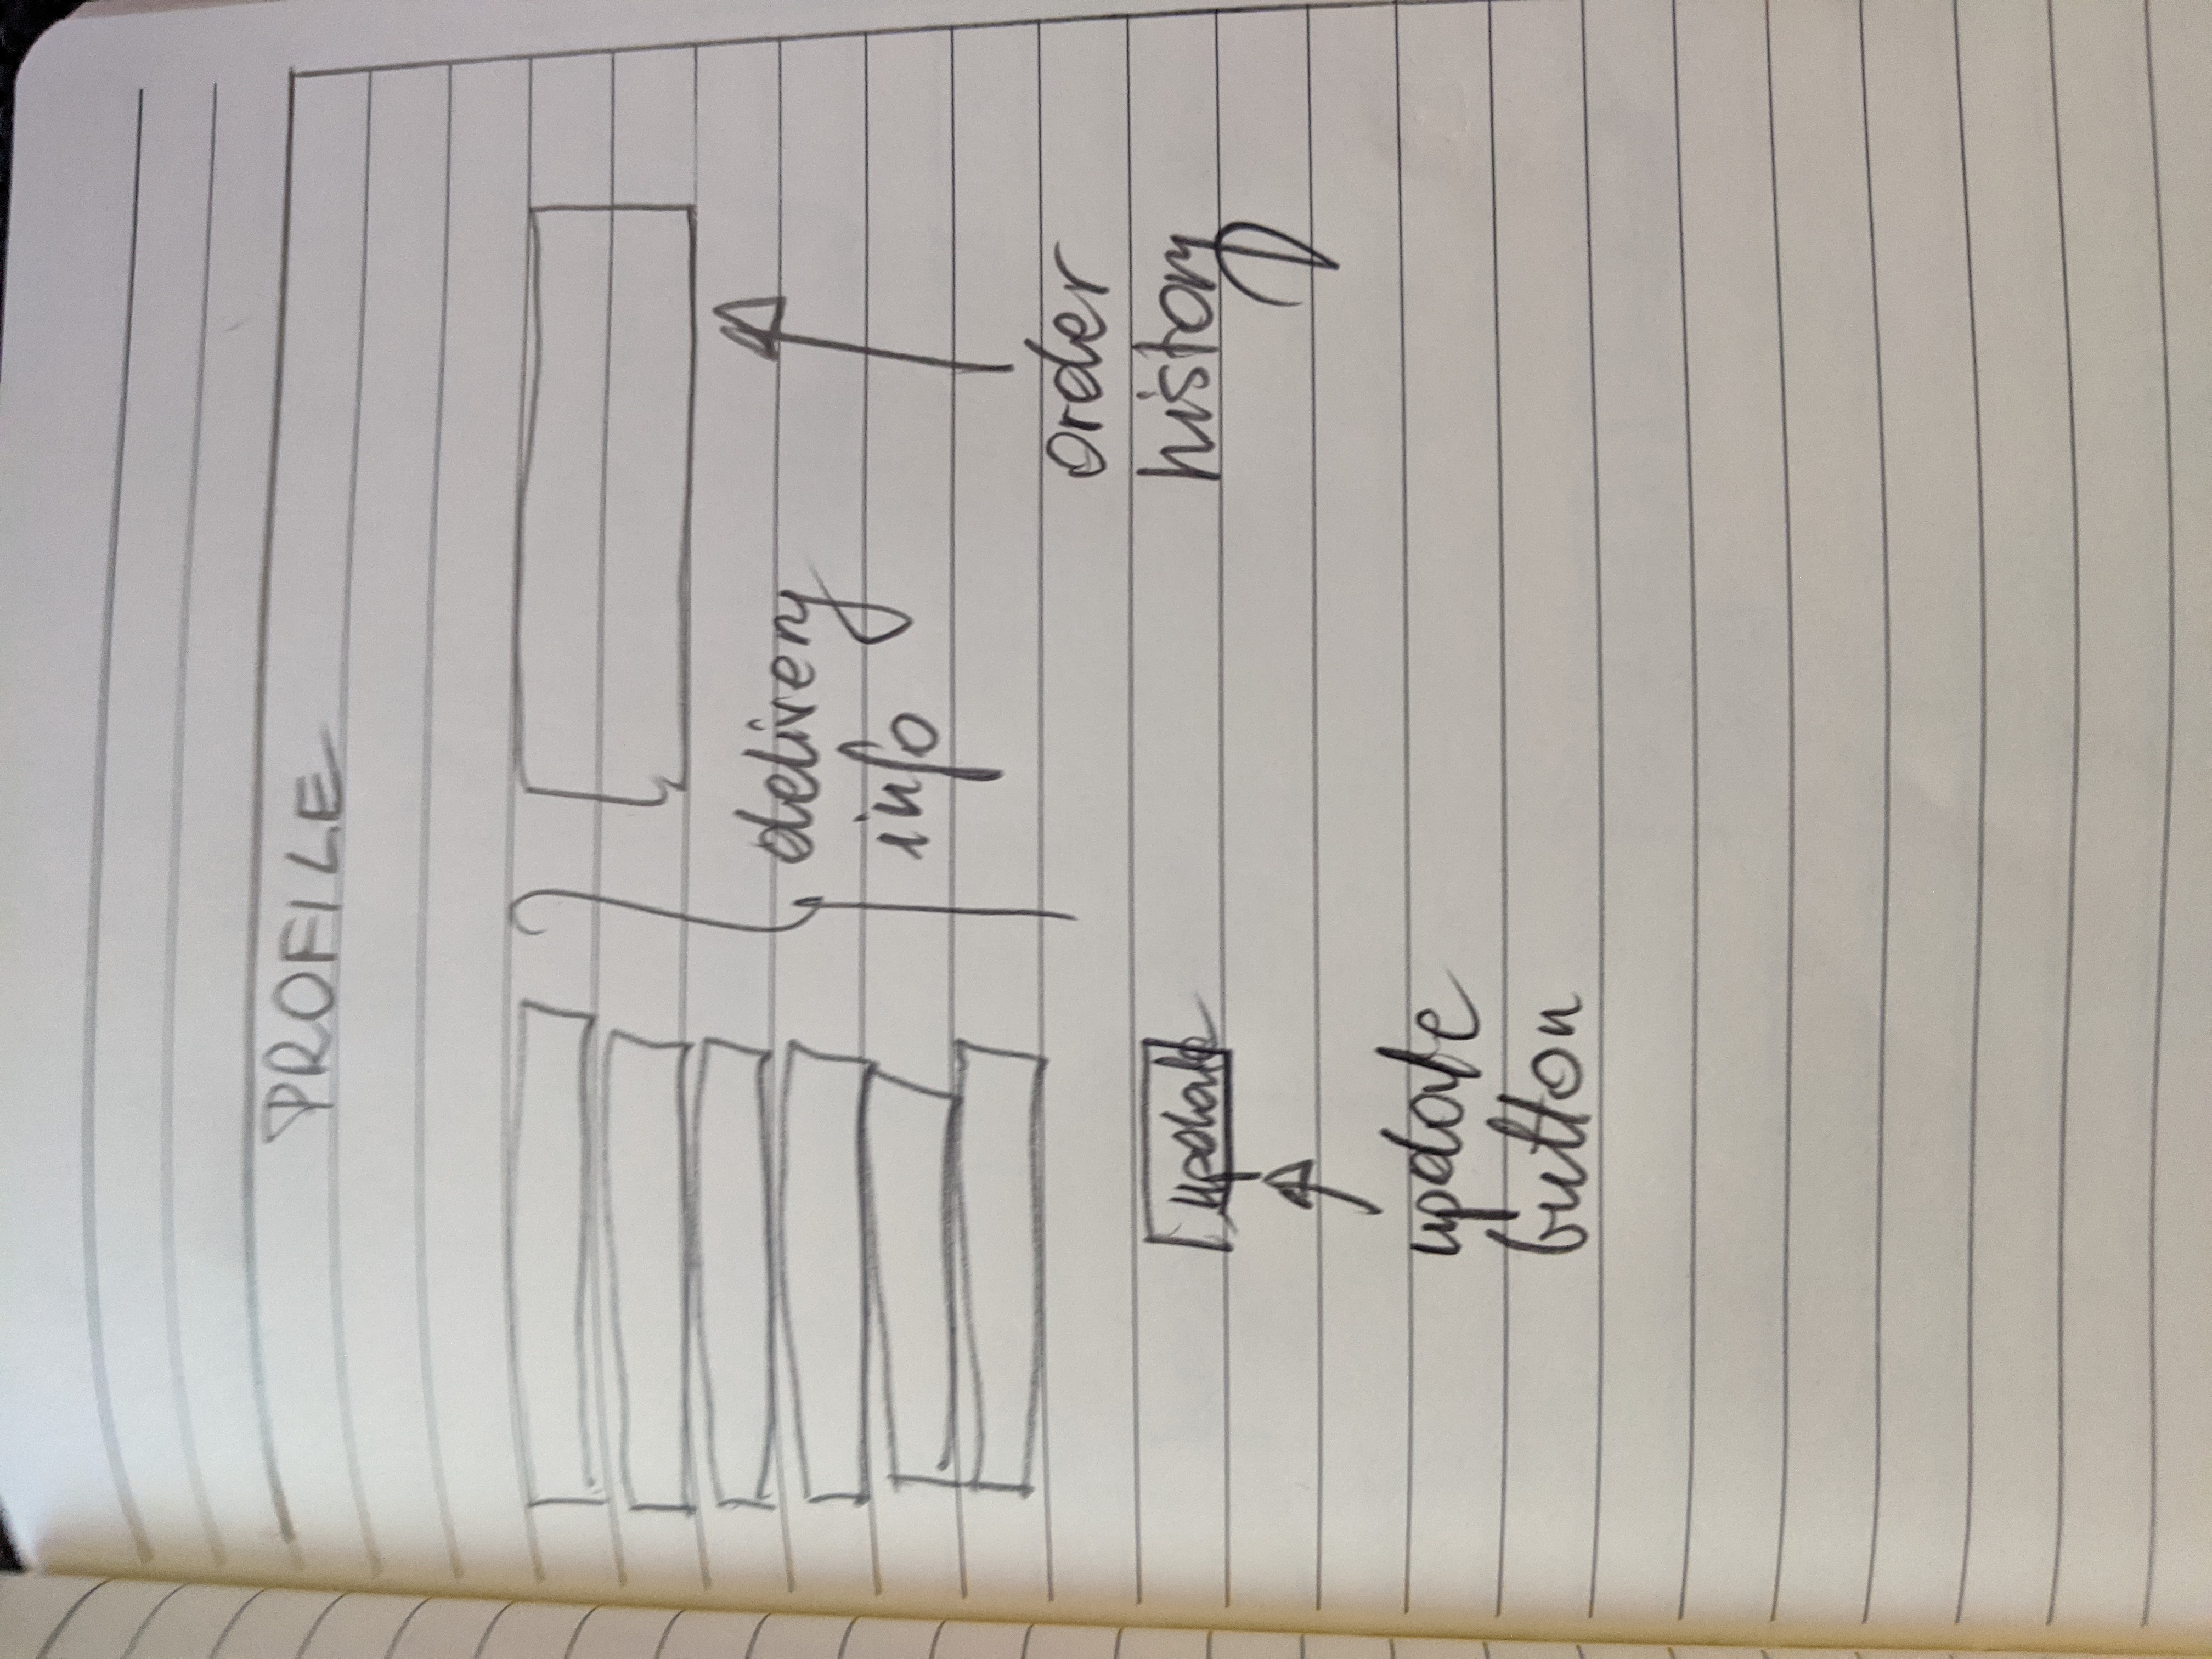 PROFILE
delivery
info
order
history
update
update
button